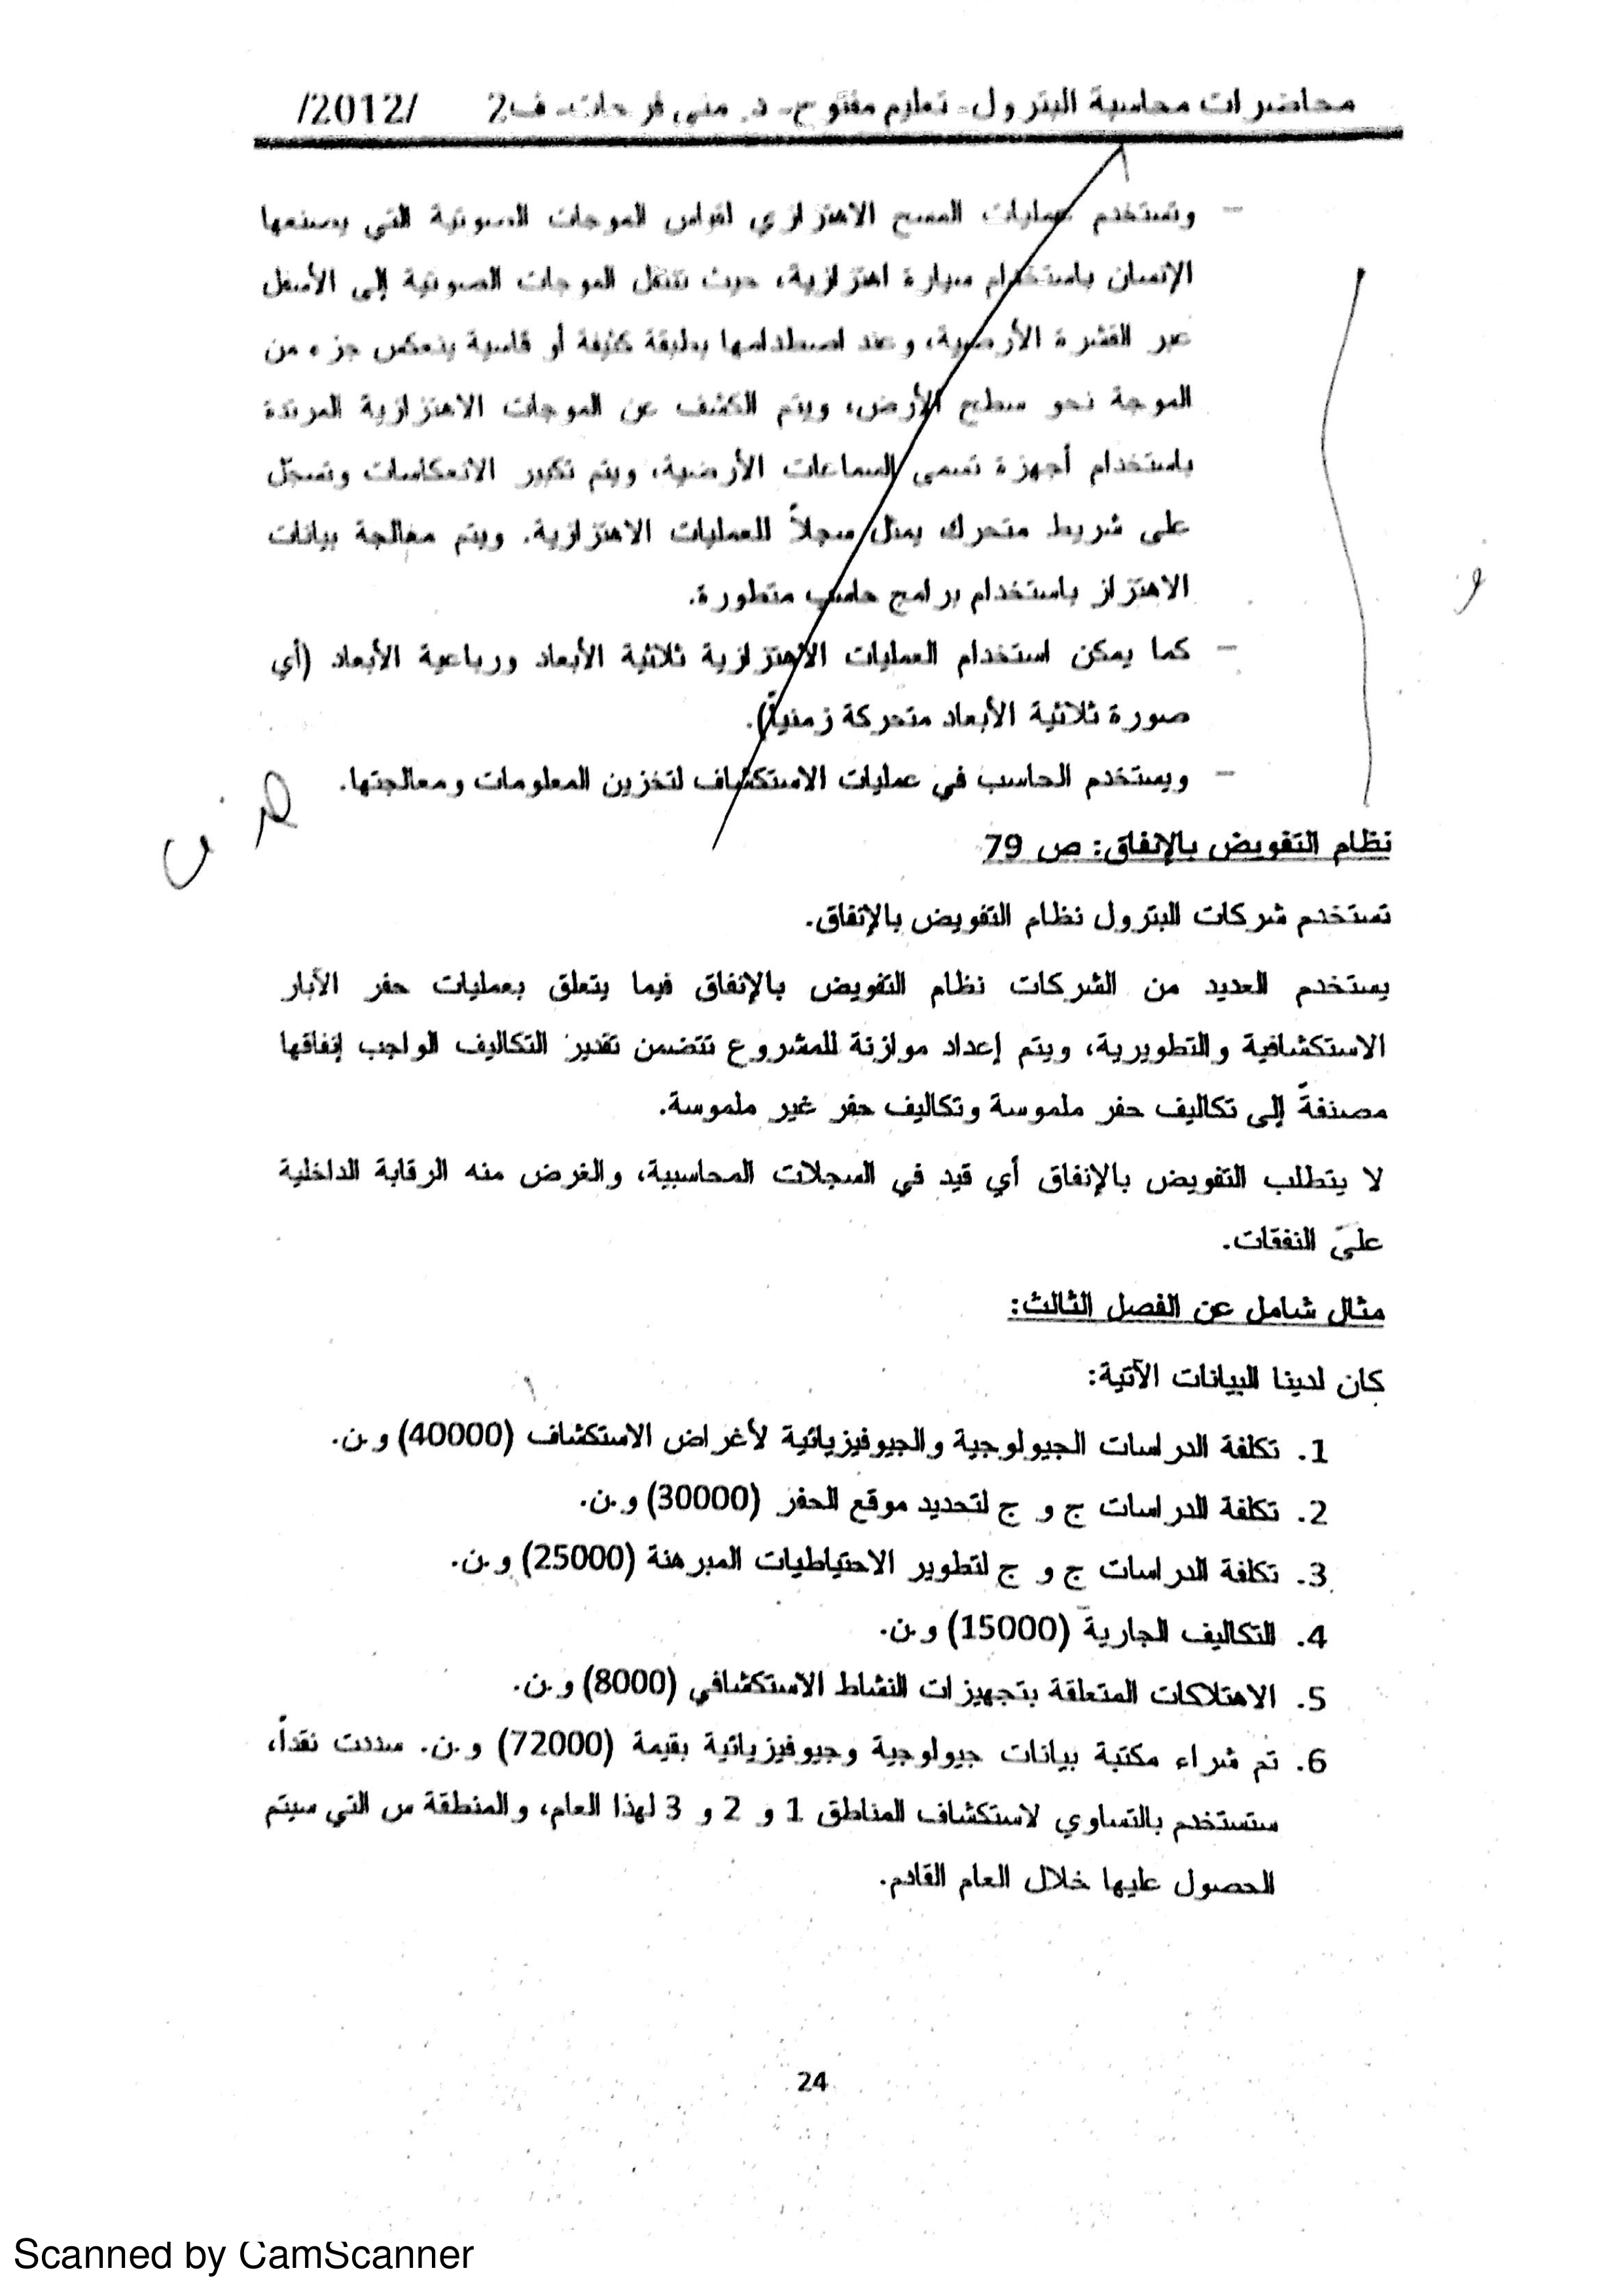 محاضرات محاسبة البترول- تعليم مفتوح- د. منى فرحات- ف2 /2012/
– وتستخدم عمليات المسح الاهتزازي لقياس الموجات الصوتية التي يصنعها
الإنسان باستخدام سيارة اهتزازية، حيث تنتقل الموجات الصوتية إلى الأسفل
عبر القشرة الأرضية، وعند اصطدامها بطبقة كثيفة أو قاسية ينعكس جزء من
الموجة نحو سطح الأرض، ويتم الكشف عن الموجات الاهتزازية المرتدة
باستخدام أجهزة تسمى السماعات الأرضية، ويتم تكبير الانعكاسات وتسجّل
على شريط متحرك يمثل سجلاً للعمليات الاهتزازية. ويتم معالجة بيانات
الاهتزاز باستخدام برامج حاسب متطورة.
– كما يمكن استخدام العمليات الاهتزازية ثلاثية الأبعاد ورباعية الأبعاد (أي
صورة ثلاثية الأبعاد متحركة زمنياً).
– ويستخدم الحاسب في عمليات الاستكشاف لتخزين المعلومات ومعالجتها.
نظام التفويض بالإنفاق: ص 79
تستخدم شركات البترول نظام التفويض بالإنفاق.
يستخدم العديد من الشركات نظام التفويض بالإنفاق فيما يتعلق بعمليات حفر الآبار
الاستكشافية والتطويرية، ويتم إعداد موازنة للمشروع تتضمن تقدير التكاليف الواجب إنفاقها
مصنفةً إلى تكاليف حفر ملموسة وتكاليف حفر غير ملموسة.
لا يتطلب التفويض بالإنفاق أي قيد في السجلات المحاسبية، والغرض منه الرقابة الداخلية
على النفقات.
مثال شامل عن الفصل الثالث:
كان لدينا البيانات الآتية:
1. تكلفة الدراسات الجيولوجية والجيوفيزيائية لأغراض الاستكشاف (40000) و.ن.
2. تكلفة الدراسات ج و ج لتحديد موقع الحفر (30000) و.ن.
3. تكلفة الدراسات ج و ج لتطوير الاحتياطيات المبرهنة (25000) و.ن.
4. التكاليف الجارية (15000) و.ن.
5. الاهتلاكات المتعلقة بتجهيزات النشاط الاستكشافي (8000) و.ن.
6. تم شراء مكتبة بيانات جيولوجية وجيوفيزيائية بقيمة (72000) و.ن. سددت نقداً،
ستستخدم بالتساوي لاستكشاف المناطق 1 و 2 و 3 لهذا العام، والمنطقة س التي سيتم
الحصول عليها خلال العام القادم.
24
Scanned by CamScanner